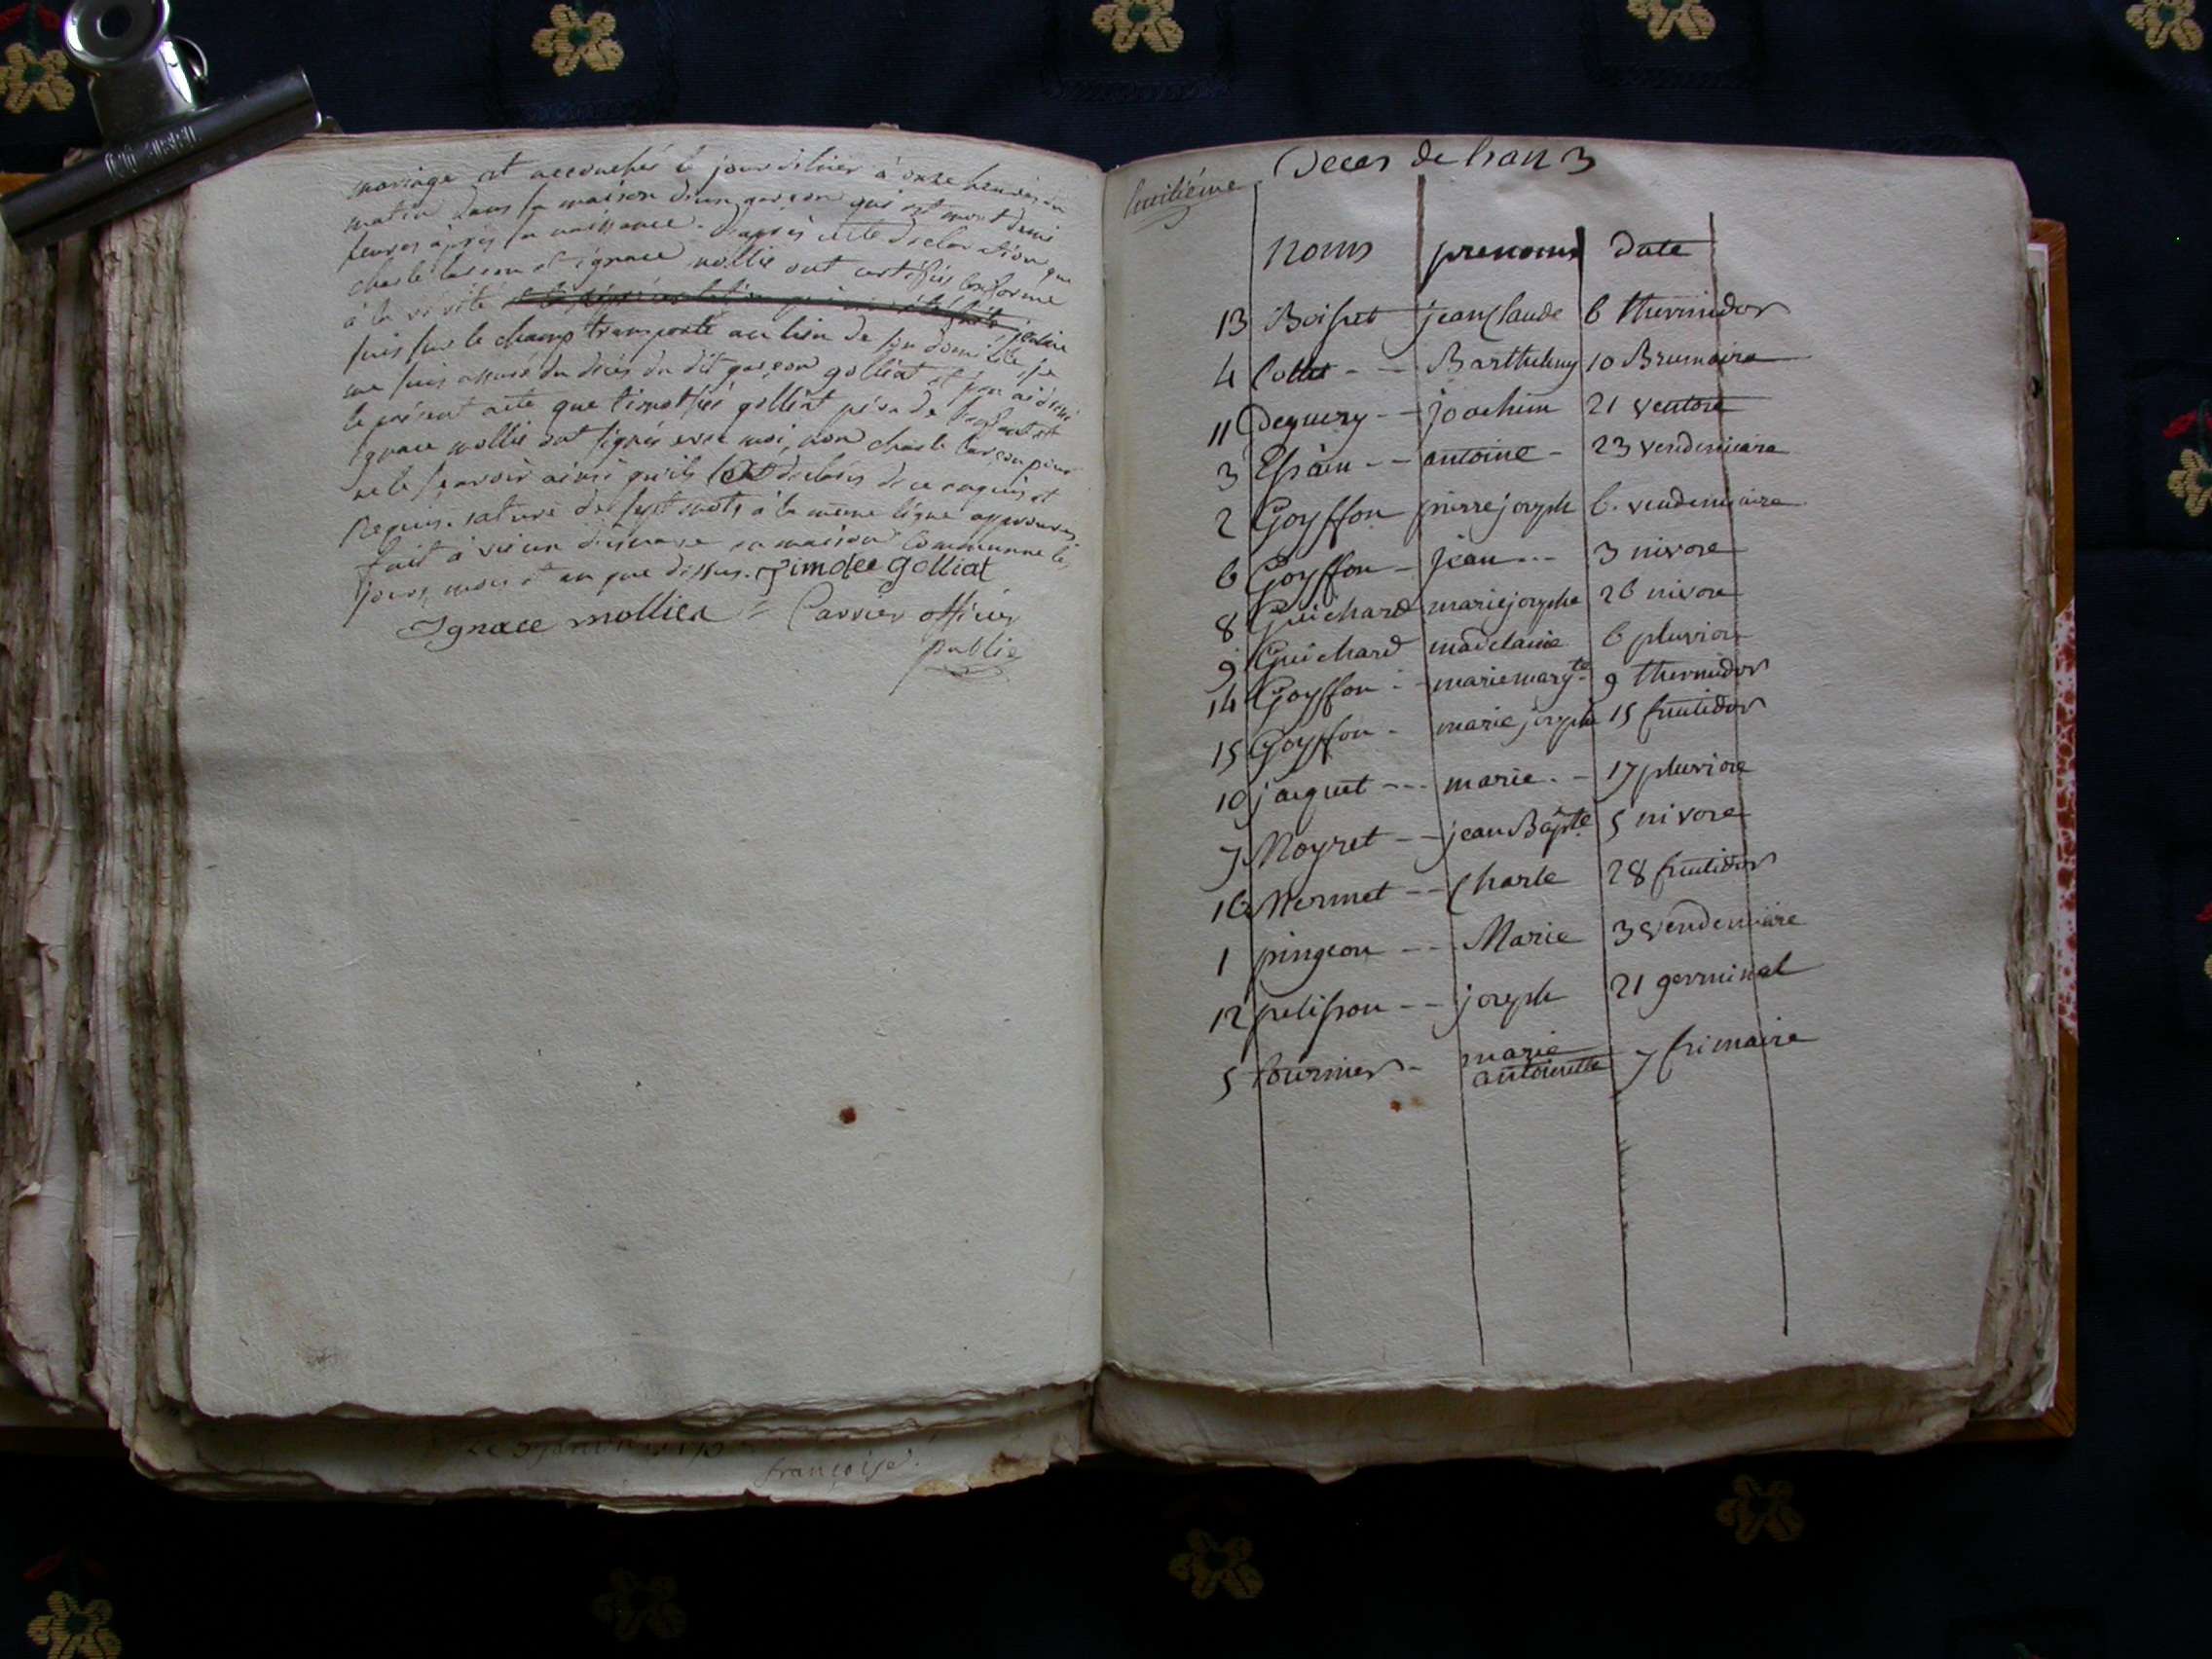 mariage est accouchée le jour d'hier à onze heures du
matin dans sa maison d'un garçon qui est mort demi
heures après sa naissance. D'après cette declaration que
charle et ignace mollie ont certifiés conforme
à la vérité
suis sur le champ transporté au lieu de son domicile je
me suis assuré du décès du dit garçon golliat et j'en ai dressé
le présent acte que timothée golliat père de l'enfant et
ignace mollie ont signés avec moi, non charle pour
ne le sçavoir ainsi qu'ils declarés de ce enquis et
Requis. rature de sept mots à la même ligne approuvés
fait à vieun en maison Communne les
jours, mois et an que dessus. Timotee Golliat
Ignace mollier = Carrier officier
public
huitiéme Deces de l'ran 3
noms prenoms date
13 Boisset jean Claude 6 thermidor
4 Collet - - Barthelemy 10 Brumaire
11 Deguery - - joachim 21 ventose
3 - - antoine - 23 vendemiaire
2 Goyffon pierre joseph 6. vendemiaire
6 Goyffon - jean - - - 3 nivose
8 Guichard marie josephe 26 nivose
9 Guichard madelaine 6 pluviose
14 Goyffon - - marie margte 9 thermidor
15 Goyffon - marie josephe 15 fructidor
10 jacquet - - - marie - - 17 pluviose
7 Moyret - - jean Bapte 5 nivose
16 Mermet - - Charle 28 fructidor
1 pingeon - - - Marie 3 vendemiaire
12 pelisson - - joseph 21 germinal
5 tournier - marie antoinette 7 frimaire
françoise